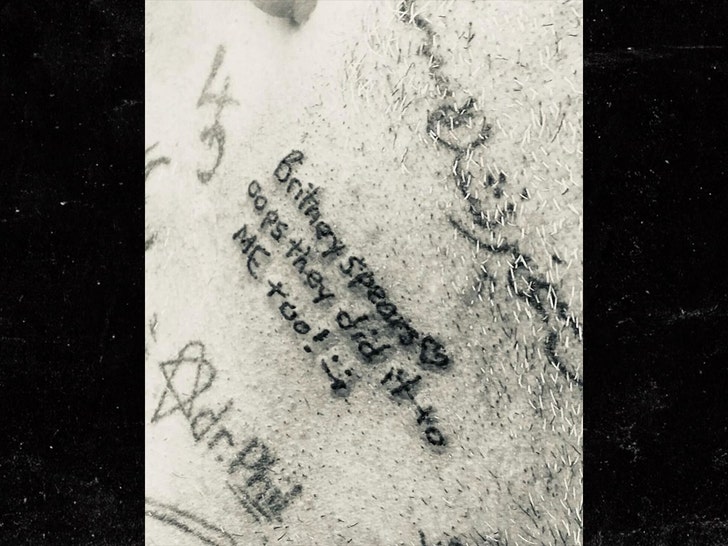 43
Britney spears♡
oops they did it to
ME too! :)
☆dr. Phil